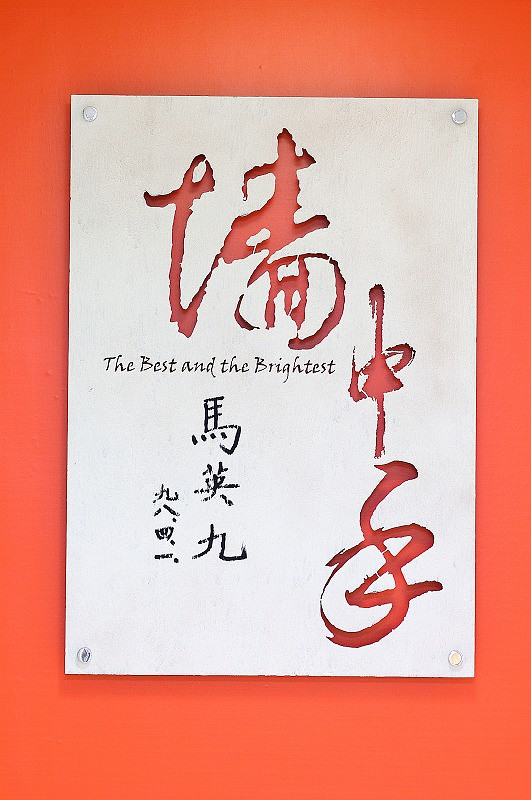 中
The Best and the Brightest
馬英九
九八、四、一、